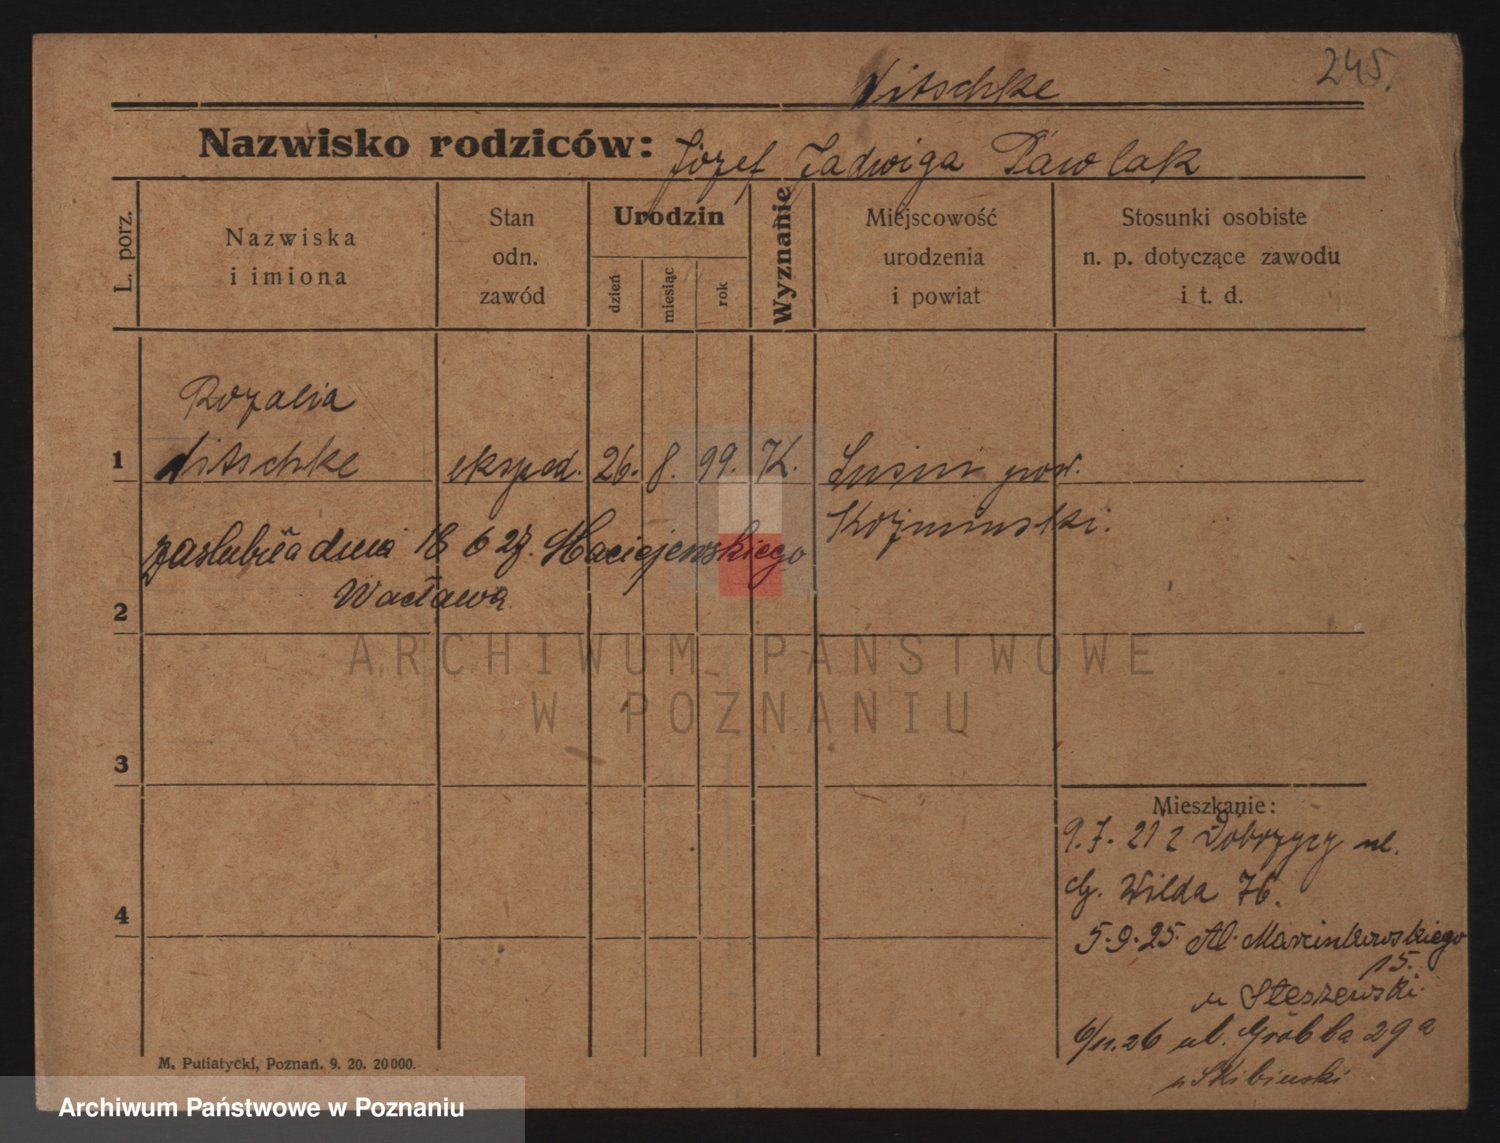 245.
Nitschke
Nazwisko rodziców: Józef Jadwiga Pawlak
L. porz.
Nazwiska
i imiona
Stan
odn.
zawód
Urodzin
dzień
miesiąc
rok
Wyznanie
Miejscowość
urodzenia
i powiat
Stosunki osobiste
n. p. dotyczące zawodu
i t. d.
Rozalia
1 Nitschke eksped. 26. 8. 99. K. pow.
Koźmiński.
zaslubiła dnia 18 6 27. Maciejewskiego
2 Wacława
ARCHIWUM PAŃSTWOWE
W POZNANIU
3
Mieszkanie:
9.7. 21 z Dobrzycy ul.
G. Wilda 76.
4
5.9.25. Al. Marcinkowskiego
15.
u Steszewski.
6/11.26 ul. Grobla 29a
u Skibinski
M. Putiatycki, Poznań. 9. 20. 20000.
Archiwum Państwowe w Poznaniu